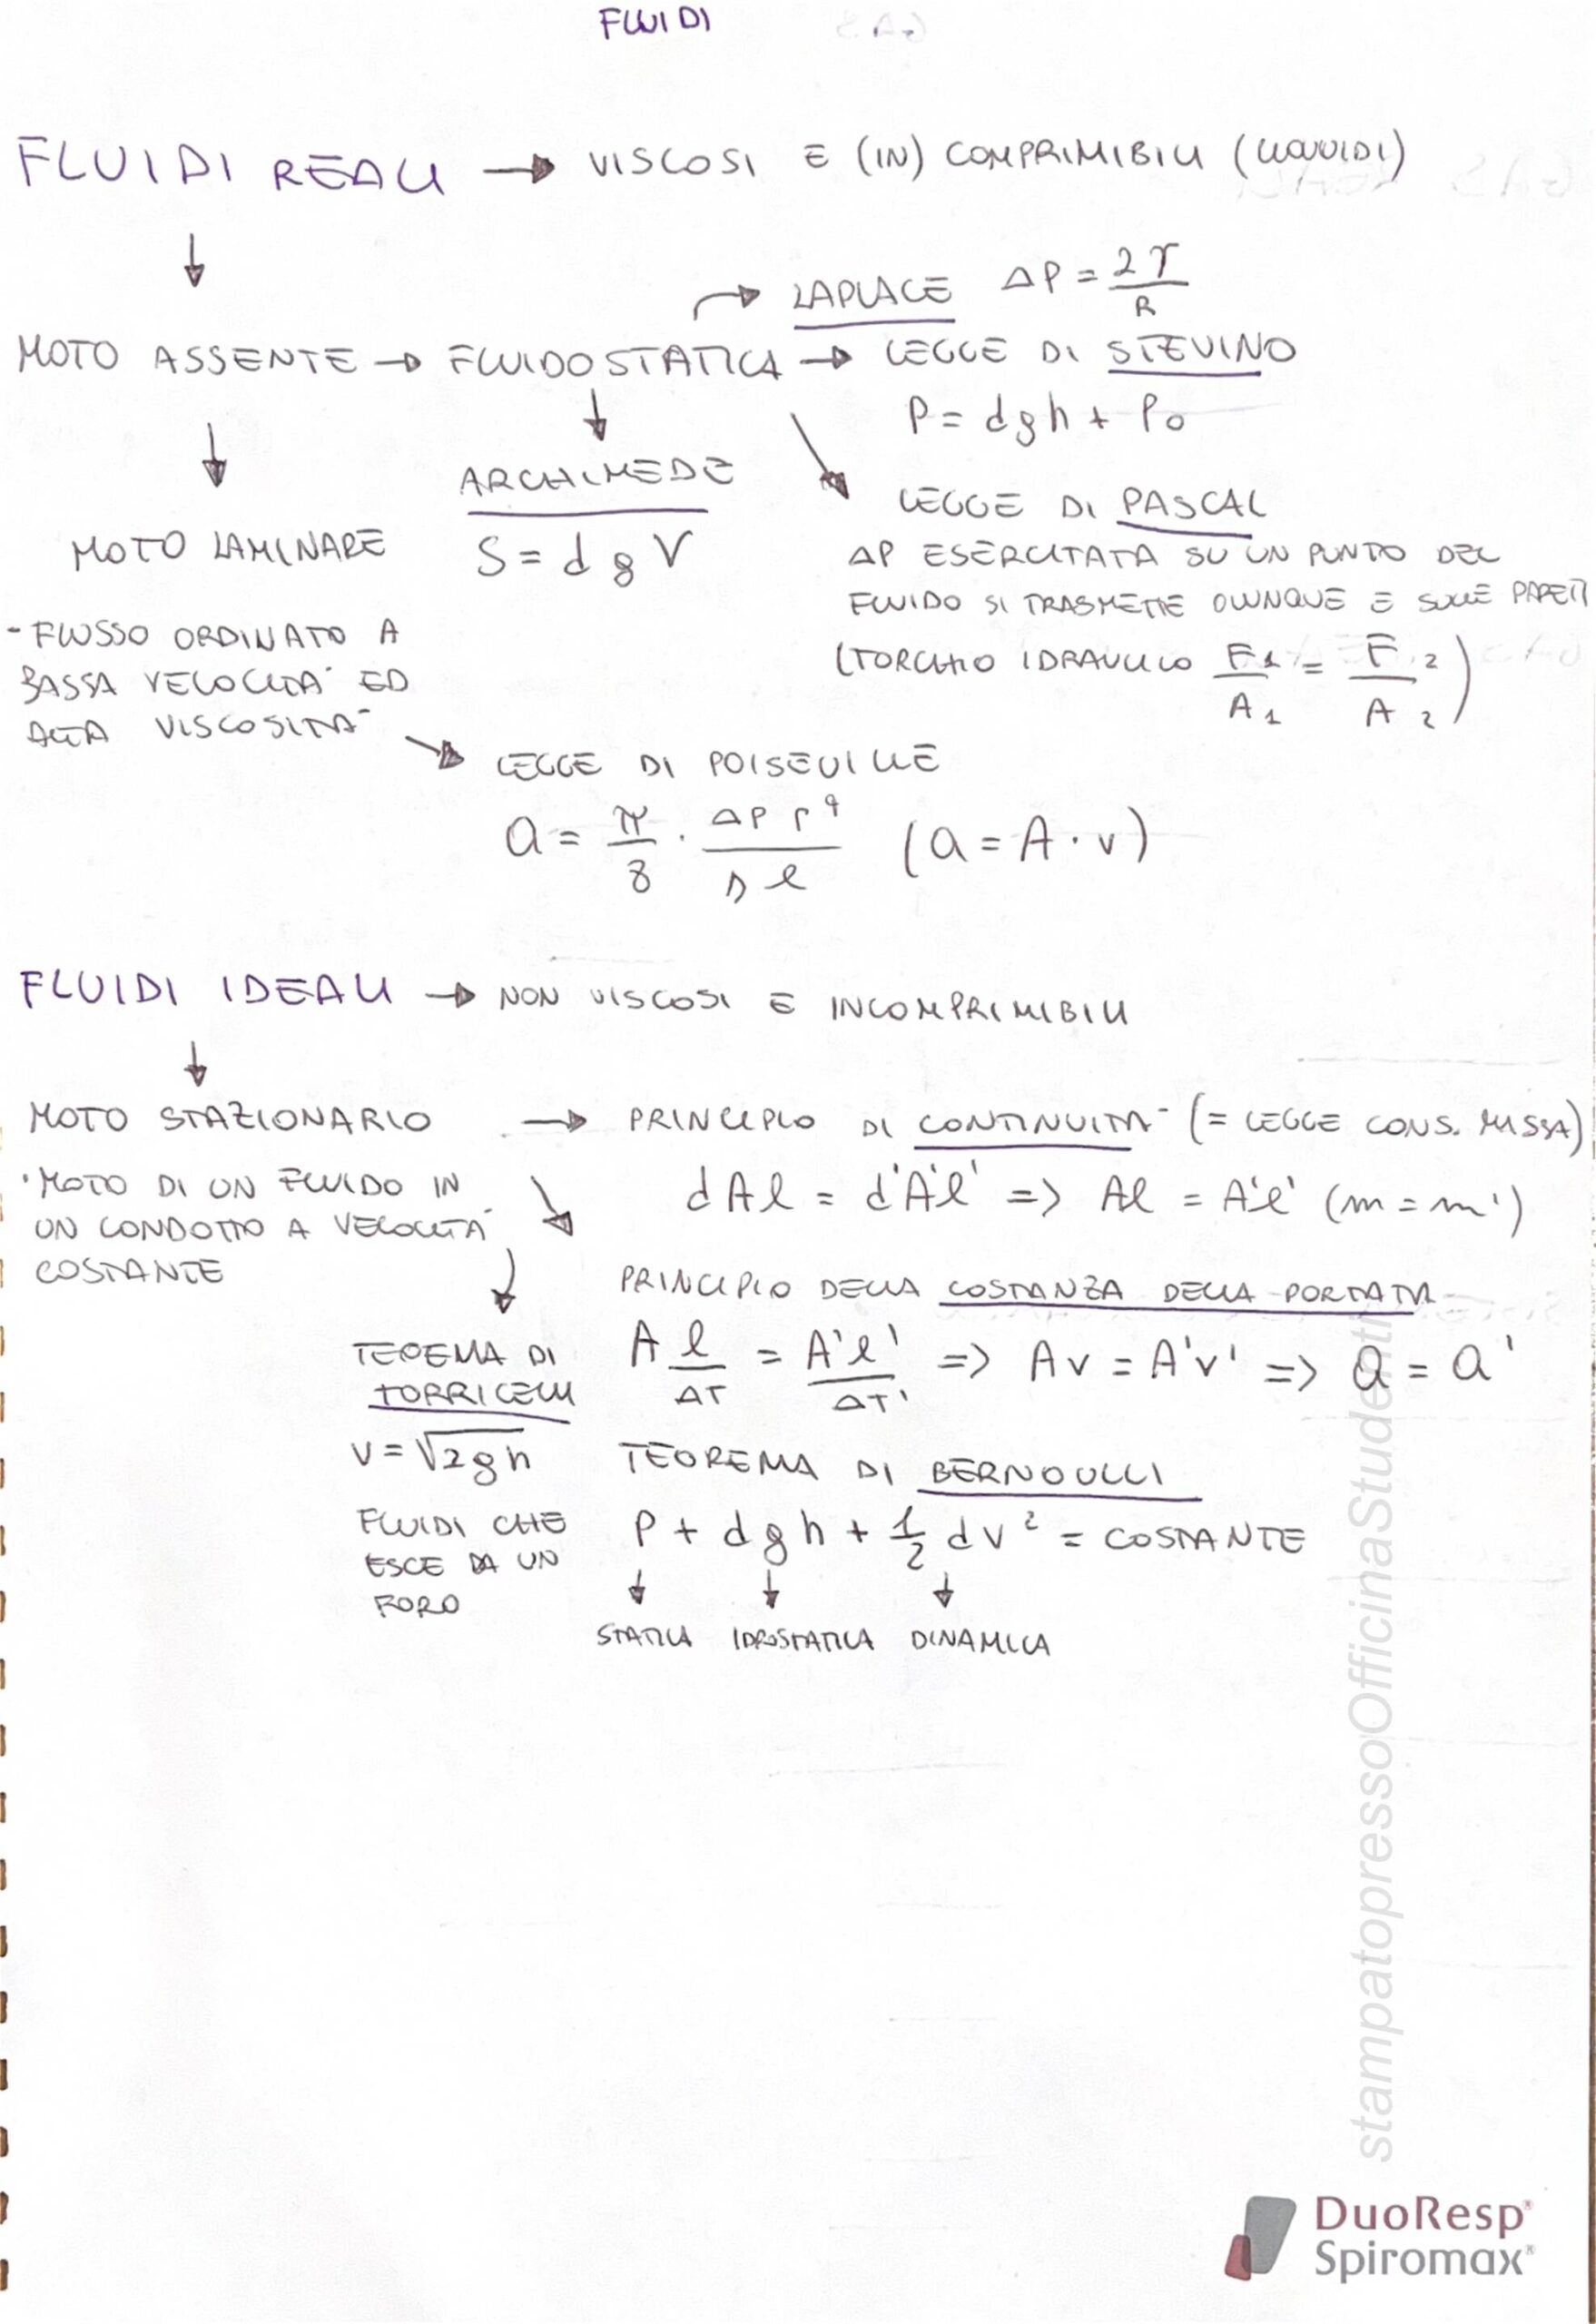 FLUIDI
FLUIDI REALI → VISCOSI E (IN) COMPRIMIBILI (LIQUIDI)
LAPLACE ΔP = 2τ/R
MOTO ASSENTE → FLUIDOSTATICA → LEGGE DI STEVINO
P = dgh + P0
ARCHIMEDE
S = d g V
LEGGE DI PASCAL
ΔP ESERCITATA SU UN PUNTO DEL
FLUIDO SI TRASMETTE OVUNQUE E SULLE PARETI
(TORCHIO IDRAULICO F1/A1 = F2/A2)
MOTO LAMINARE
- FLUSSO ORDINATO A
BASSA VELOCITA' ED
ALTA VISCOSITA'
LEGGE DI POISEUILLE
Q = π/8 · ΔP r⁴/η l (Q = A · v)
FLUIDI IDEALI → NON VISCOSI E INCOMPRIMIBILI
MOTO STAZIONARIO → PRINCIPIO DI CONTINUITA' (= LEGGE CONS. MASSA)
dAl = d'A'l' => Al = A'l' (m = m')
· MOTO DI UN FLUIDO IN
UN CONDOTTO A VELOCITA'
COSTANTE
PRINCIPIO DELLA COSTANZA DELLA PORTATA
A l/ΔT = A'l'/ΔT' => Av = A'v' => Q = Q'
TEOREMA DI
TORRICELLI
v = √2gh
FLUIDI CHE
ESCE DA UN
FORO
TEOREMA DI BERNOULLI
P + dgh + 1/2 dv² = COSTANTE
STATICA IDROSTATICA DINAMICA
stampatopressoOfficinaStudenti
DuoResp®
Spiromax®